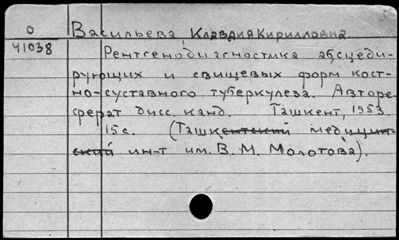 О Васильева, Клавдия Кирилловна
41038 Рентгенодиагностика абсцеди-
рующих и свищевых форм кост-
но-суставного туберкулеза. Авторе-
ферат дисс. канд. Ташкент, 1953.
15 с. (Ташкентский медицин-
ский ин-т им. В. М. Молотова).